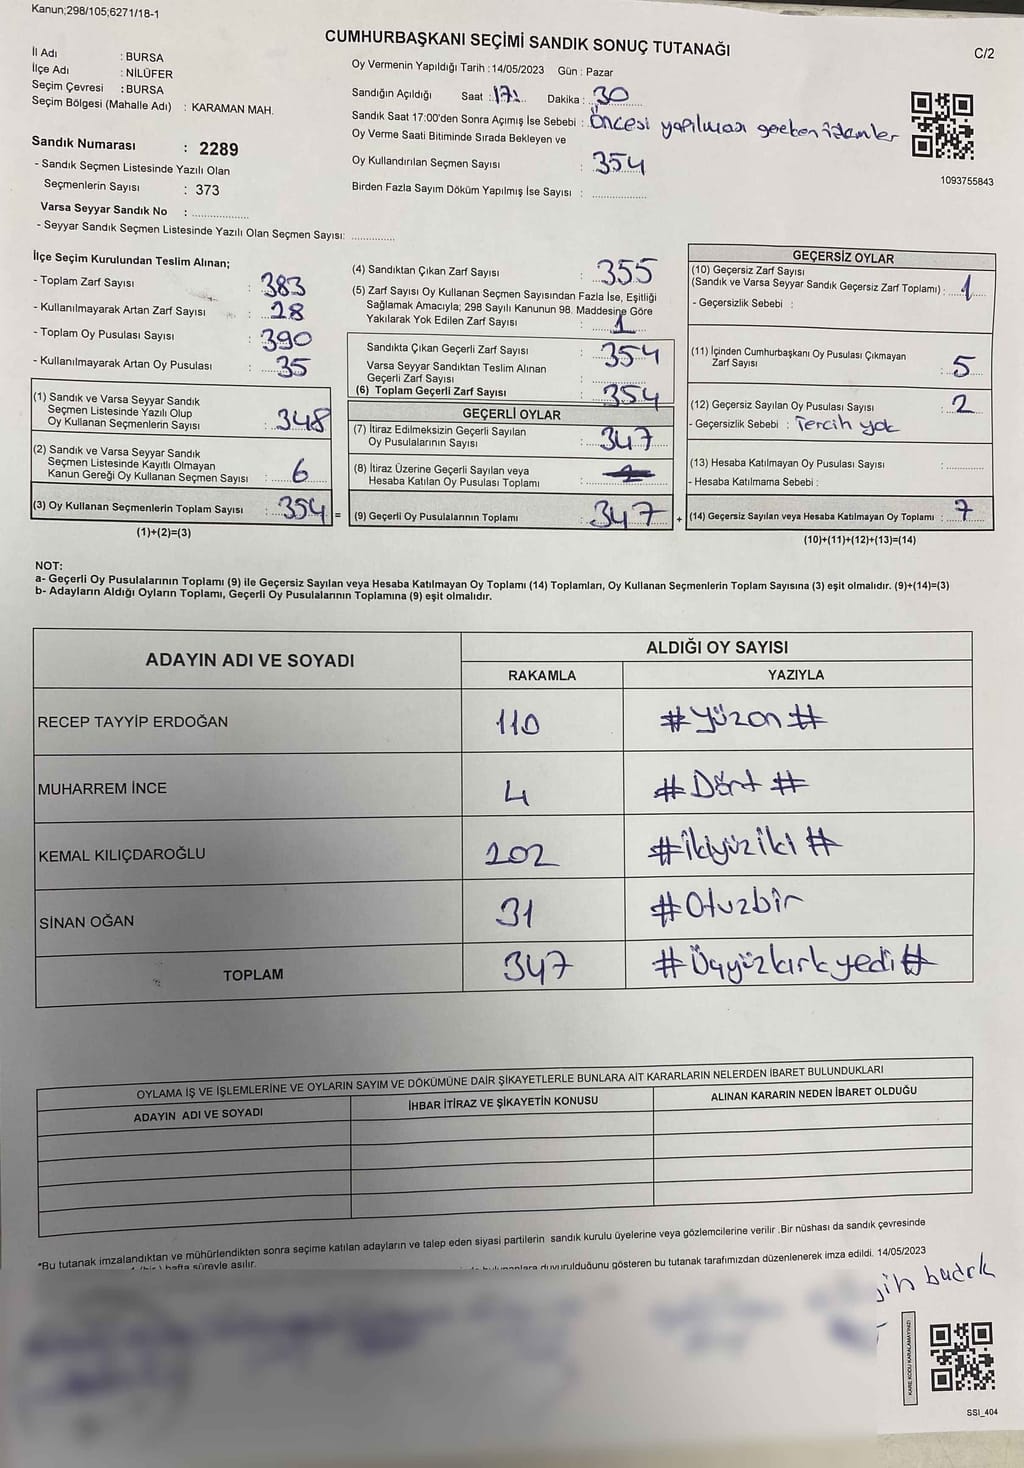 Kanun;298/105;6271/18-1
CUMHURBAŞKANI SEÇİMİ SANDIK SONUÇ TUTANAĞI
C/2
İl Adı : BURSA
İlçe Adı : NİLÜFER
Seçim Çevresi : BURSA
Seçim Bölgesi (Mahalle Adı) : KARAMAN MAH.
Sandık Numarası : 2289
- Sandık Seçmen Listesinde Yazılı Olan
Seçmenlerin Sayısı : 373
Varsa Seyyar Sandık No : ..................
- Seyyar Sandık Seçmen Listesinde Yazılı Olan Seçmen Sayısı: .............
Oy Vermenin Yapıldığı Tarih : 14/05/2023 Gün : Pazar
Sandığın Açıldığı Saat : 17 Dakika : 30
Sandık Saat 17:00'den Sonra Açımış İse Sebebi : Öncesi yapılması gereken işlemler
Oy Verme Saati Bitiminde Sırada Bekleyen ve
Oy Kullandırılan Seçmen Sayısı : 354
Birden Fazla Sayım Döküm Yapılmış İse Sayısı : .................
1093755843
İlçe Seçim Kurulundan Teslim Alınan;
- Toplam Zarf Sayısı : 383
- Kullanılmayarak Artan Zarf Sayısı : 28
- Toplam Oy Pusulası Sayısı : 390
- Kullanılmayarak Artan Oy Pusulası : 35
(1) Sandık ve Varsa Seyyar Sandık
Seçmen Listesinde Yazılı Olup
Oy Kullanan Seçmenlerin Sayısı : 348
(2) Sandık ve Varsa Seyyar Sandık
Seçmen Listesinde Kayıtlı Olmayan
Kanun Gereği Oy Kullanan Seçmen Sayısı : 6
(3) Oy Kullanan Seçmenlerin Toplam Sayısı : 354 =
(1)+(2)=(3)
(4) Sandıktan Çıkan Zarf Sayısı : 355
(5) Zarf Sayısı Oy Kullanan Seçmen Sayısından Fazla İse, Eşitliği
Sağlamak Amacıyla; 298 Sayılı Kanunun 98. Maddesine Göre
Yakılarak Yok Edilen Zarf Sayısı : 1
Sandıkta Çıkan Geçerli Zarf Sayısı : 354
Varsa Seyyar Sandıktan Teslim Alınan
Geçerli Zarf Sayısı :
(6) Toplam Geçerli Zarf Sayısı : 354
GEÇERLİ OYLAR
(7) İtiraz Edilmeksizin Geçerli Sayılan
Oy Pusulalarının Sayısı : 347
(8) İtiraz Üzerine Geçerli Sayılan veya
Hesaba Katılan Oy Pusulası Toplamı :
(9) Geçerli Oy Pusulalarının Toplamı : 347 +
GEÇERSİZ OYLAR
(10) Geçersiz Zarf Sayısı
(Sandık ve Varsa Seyyar Sandık Geçersiz Zarf Toplamı) : 1
- Geçersizlik Sebebi :
(11) İçinden Cumhurbaşkanı Oy Pusulası Çıkmayan
Zarf Sayısı : 5
(12) Geçersiz Sayılan Oy Pusulası Sayısı : 2
- Geçersizlik Sebebi : Tercih yok
(13) Hesaba Katılmayan Oy Pusulası Sayısı : ............
- Hesaba Katılmama Sebebi :
(14) Geçersiz Sayılan veya Hesaba Katılmayan Oy Toplamı : 7
(10)+(11)+(12)+(13)=(14)
NOT:
a- Geçerli Oy Pusulalarının Toplamı (9) ile Geçersiz Sayılan veya Hesaba Katılmayan Oy Toplamı (14) Toplamları, Oy Kullanan Seçmenlerin Toplam Sayısına (3) eşit olmalıdır. (9)+(14)=(3)
b- Adayların Aldığı Oyların Toplamı, Geçerli Oy Pusulalarının Toplamına (9) eşit olmalıdır.
ADAYIN ADI VE SOYADI
ALDIĞI OY SAYISI
RAKAMLA YAZIYLA
RECEP TAYYİP ERDOĞAN 110 #Yüzon#
MUHARREM İNCE 4 #Dört#
KEMAL KILIÇDAROĞLU 202 #İkiyüziki#
SİNAN OĞAN 31 #Otuzbir
TOPLAM 347 #Üçyüzkırkyedi#
OYLAMA İŞ VE İŞLEMLERİNE VE OYLARIN SAYIM VE DÖKÜMÜNE DAİR ŞİKAYETLERLE BUNLARA AİT KARARLARIN NELERDEN İBARET BULUNDUKLARI
ADAYIN ADI VE SOYADI İHBAR İTİRAZ VE ŞİKAYETİN KONUSU ALINAN KARARIN NEDEN İBARET OLDUĞU
*Bu tutanak imzalandıktan ve mühürlendikten sonra seçime katılan adayların ve talep eden siyasi partilerin sandık kurulu üyelerine veya gözlemcilerine verilir .Bir nüshası da sandık çevresinde
hafta süreyle asılır.
duyurulduğunu gösteren bu tutanak tarafımızdan düzenlenerek imza edildi. 14/05/2023
KARE KODU KARALAMAYINIZ!
SSI_404